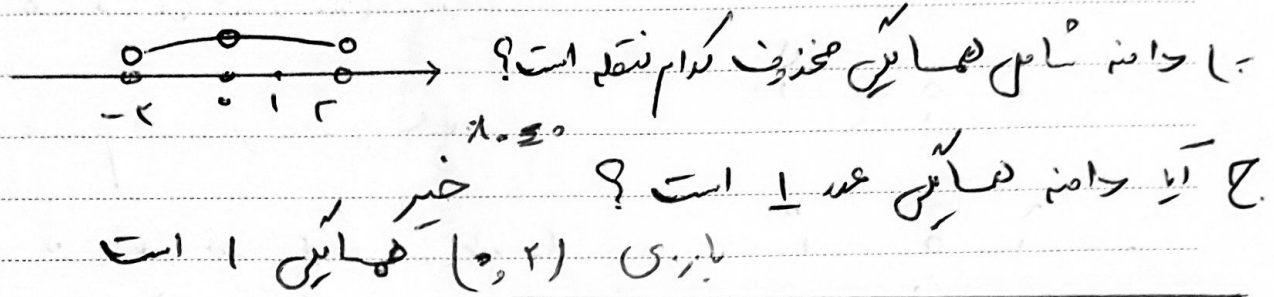 ب) دامنه شامل همسایگی محذوف کدام نقطه است؟
-۲ ۰ ۱ ۲
x₀ = ۰
ج آیا دامنه همسایگی عدد ۱ است؟ خیر
بازه‌ی (۰,۲) همسایگی ۱ است